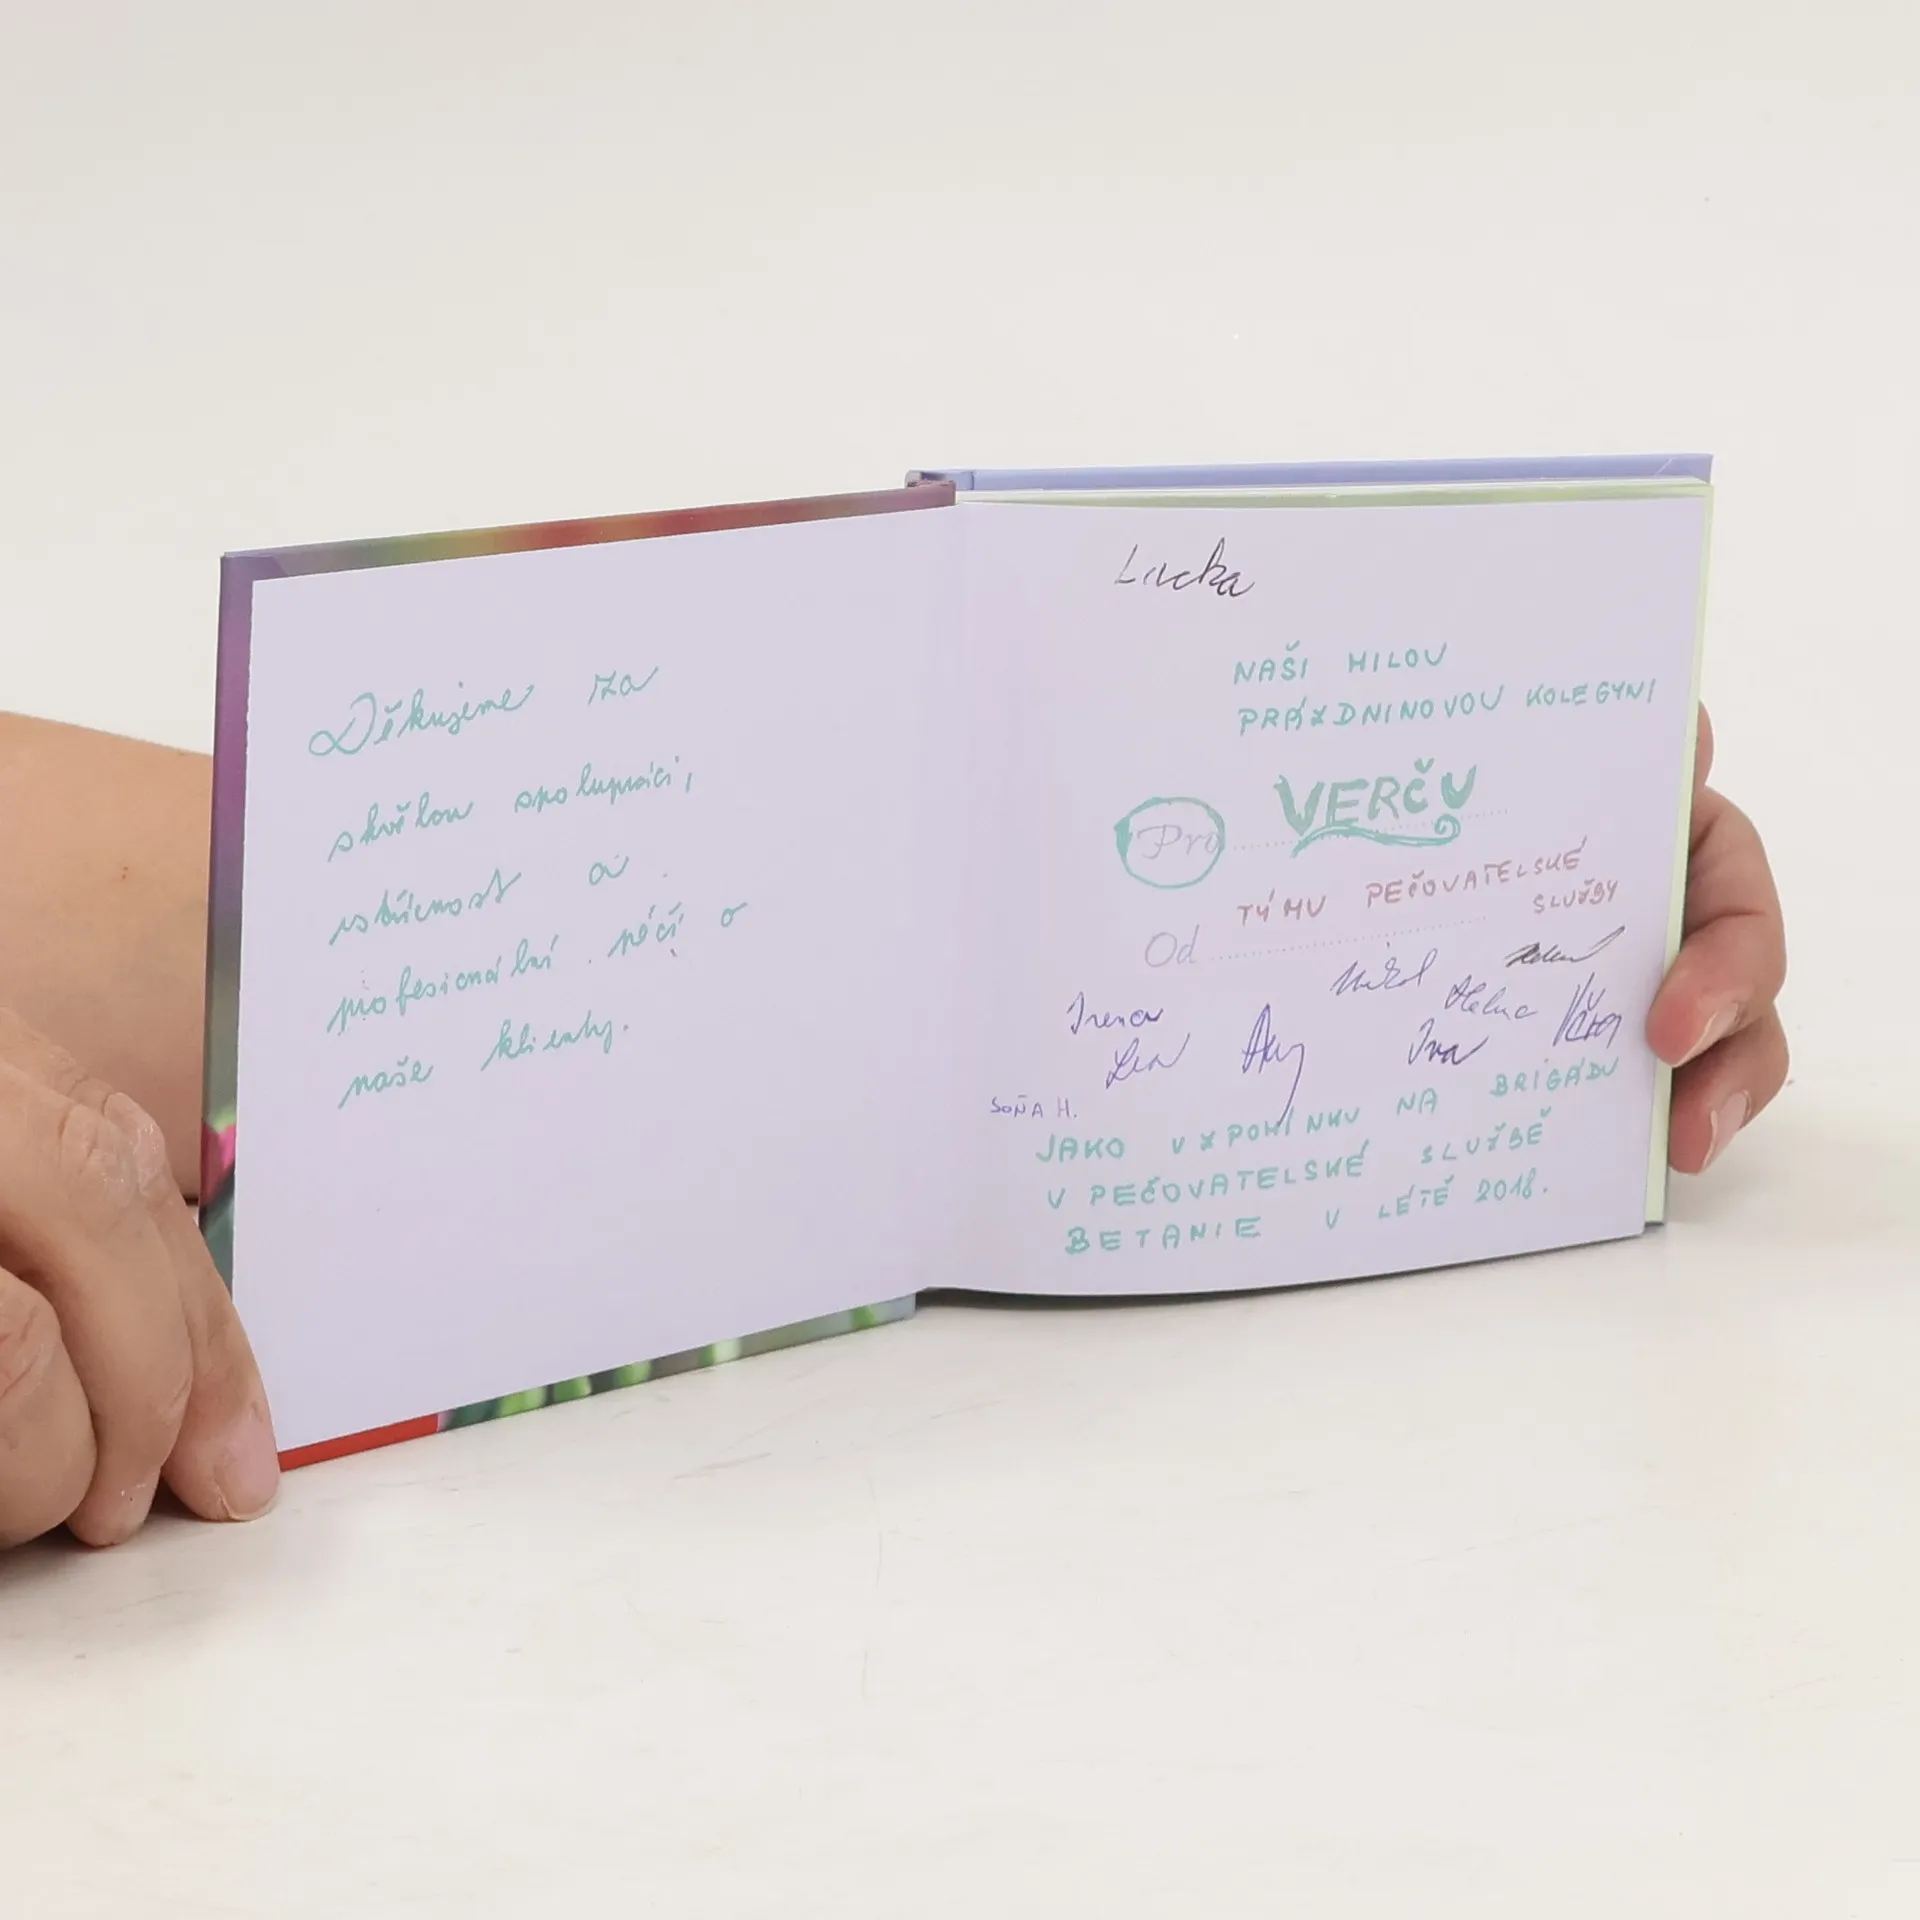 Děkujeme za
skvělou spolupráci,
vstřícnost a
profesionální péči o
naše klienty.
Lucka
NAŠI MILOU
PRÁZDNINOVOU KOLEGYNI
Pro VERČU
TÝMU PEČOVATELSKÉ
SLUŽBY
Od
Irena
Helena
Iva
Věra
SOŇA H.
JAKO VZPOMÍNKU NA BRIGÁDU
V PEČOVATELSKÉ SLUŽBĚ
BETANIE V LÉTĚ 2018.